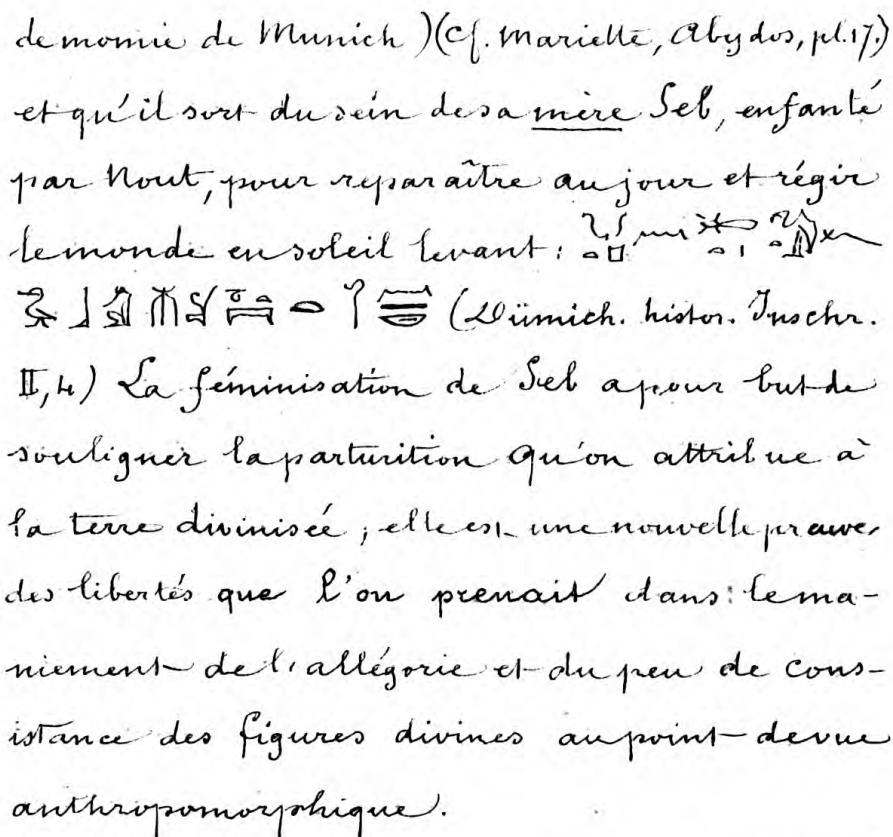 de momie de Munich) (Cf. Mariette, Abydos, pl. 17.)
et qu'il sort du sein de sa mère Seb, enfanté
par Nout, pour reparaître au jour et régir
le monde en soleil levant:
(Dümich. histor. Inschr.
II, 4) La féminisation de Seb a pour but de
souligner la parturition qu'on attribue à
la terre divinisée; elle est une nouvelle preuve
des libertés que l'on prenait dans le ma-
niement de l'allégorie et du peu de cons-
istance des figures divines au point de vue
anthropomorphique.